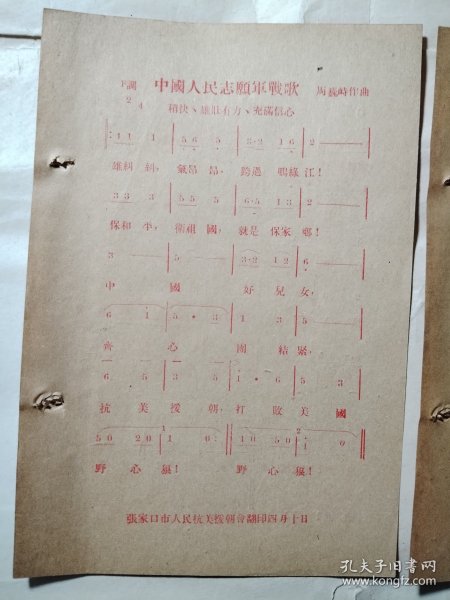 下調 中國人民志願軍戰歌 馬巍峙作曲
2 4 稍快、雄壯有力、充滿信心
1 1 1 5 6 5 3·2 1 6 2 —
雄糾糾，氣昂昂，跨過鴨綠江！
3 3 3 5 5 5 6·5 1 3 2 —
保和平，衛祖國，就是保家鄉！
3 — 5 — 3·2 1 2 6 —
中國好兒女，
6 1 5 · 3 1 3 5 —
齊心團結緊，
6 5 3 5 1 · 6 5 3
抗美援朝，打敗美國
5 0 2 0 1 0 1 0 5 0 1 0
野心狼！野心狼！
張家口市人民抗美援朝會翻印四月十日
孔夫子旧书网
book.kongfz.com